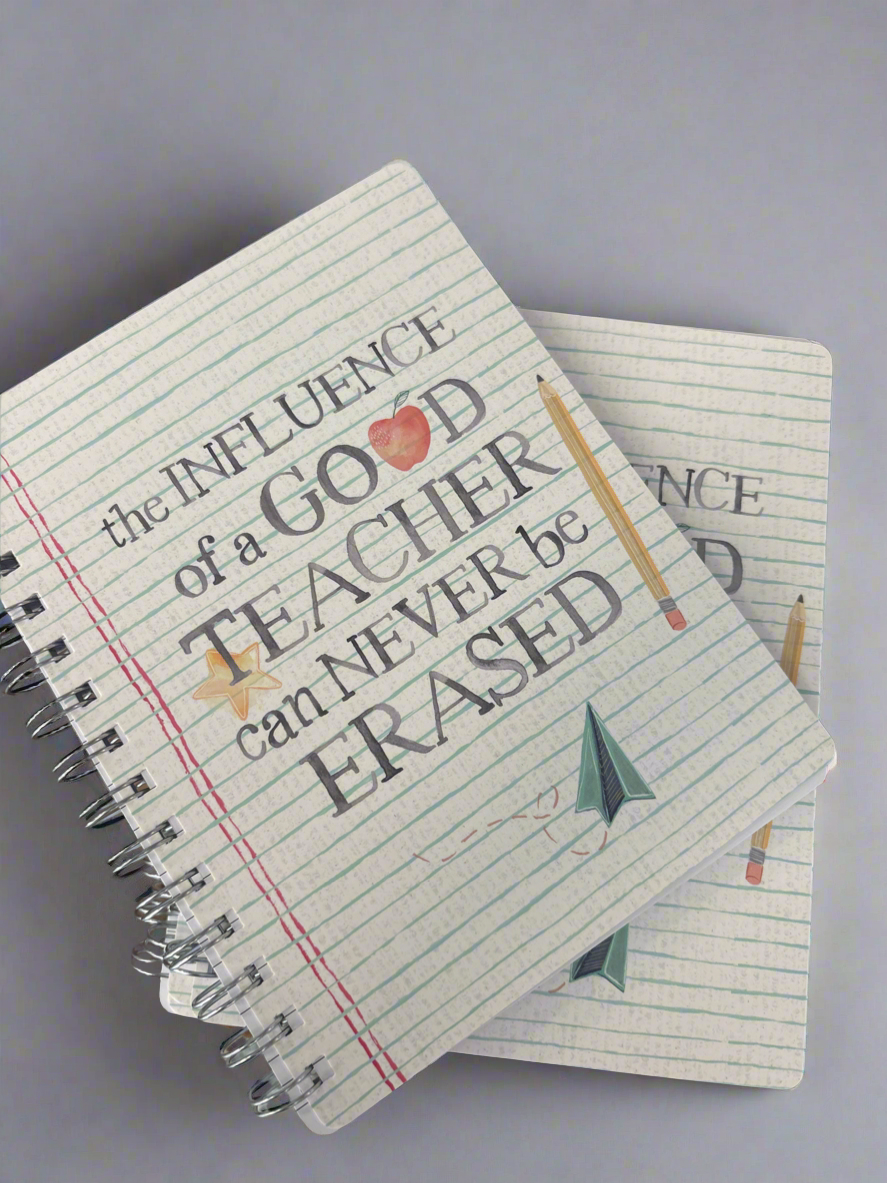 the INFLUENCE
of a GOOD
TEACHER
can NEVER be
ERASED
ENCE
D